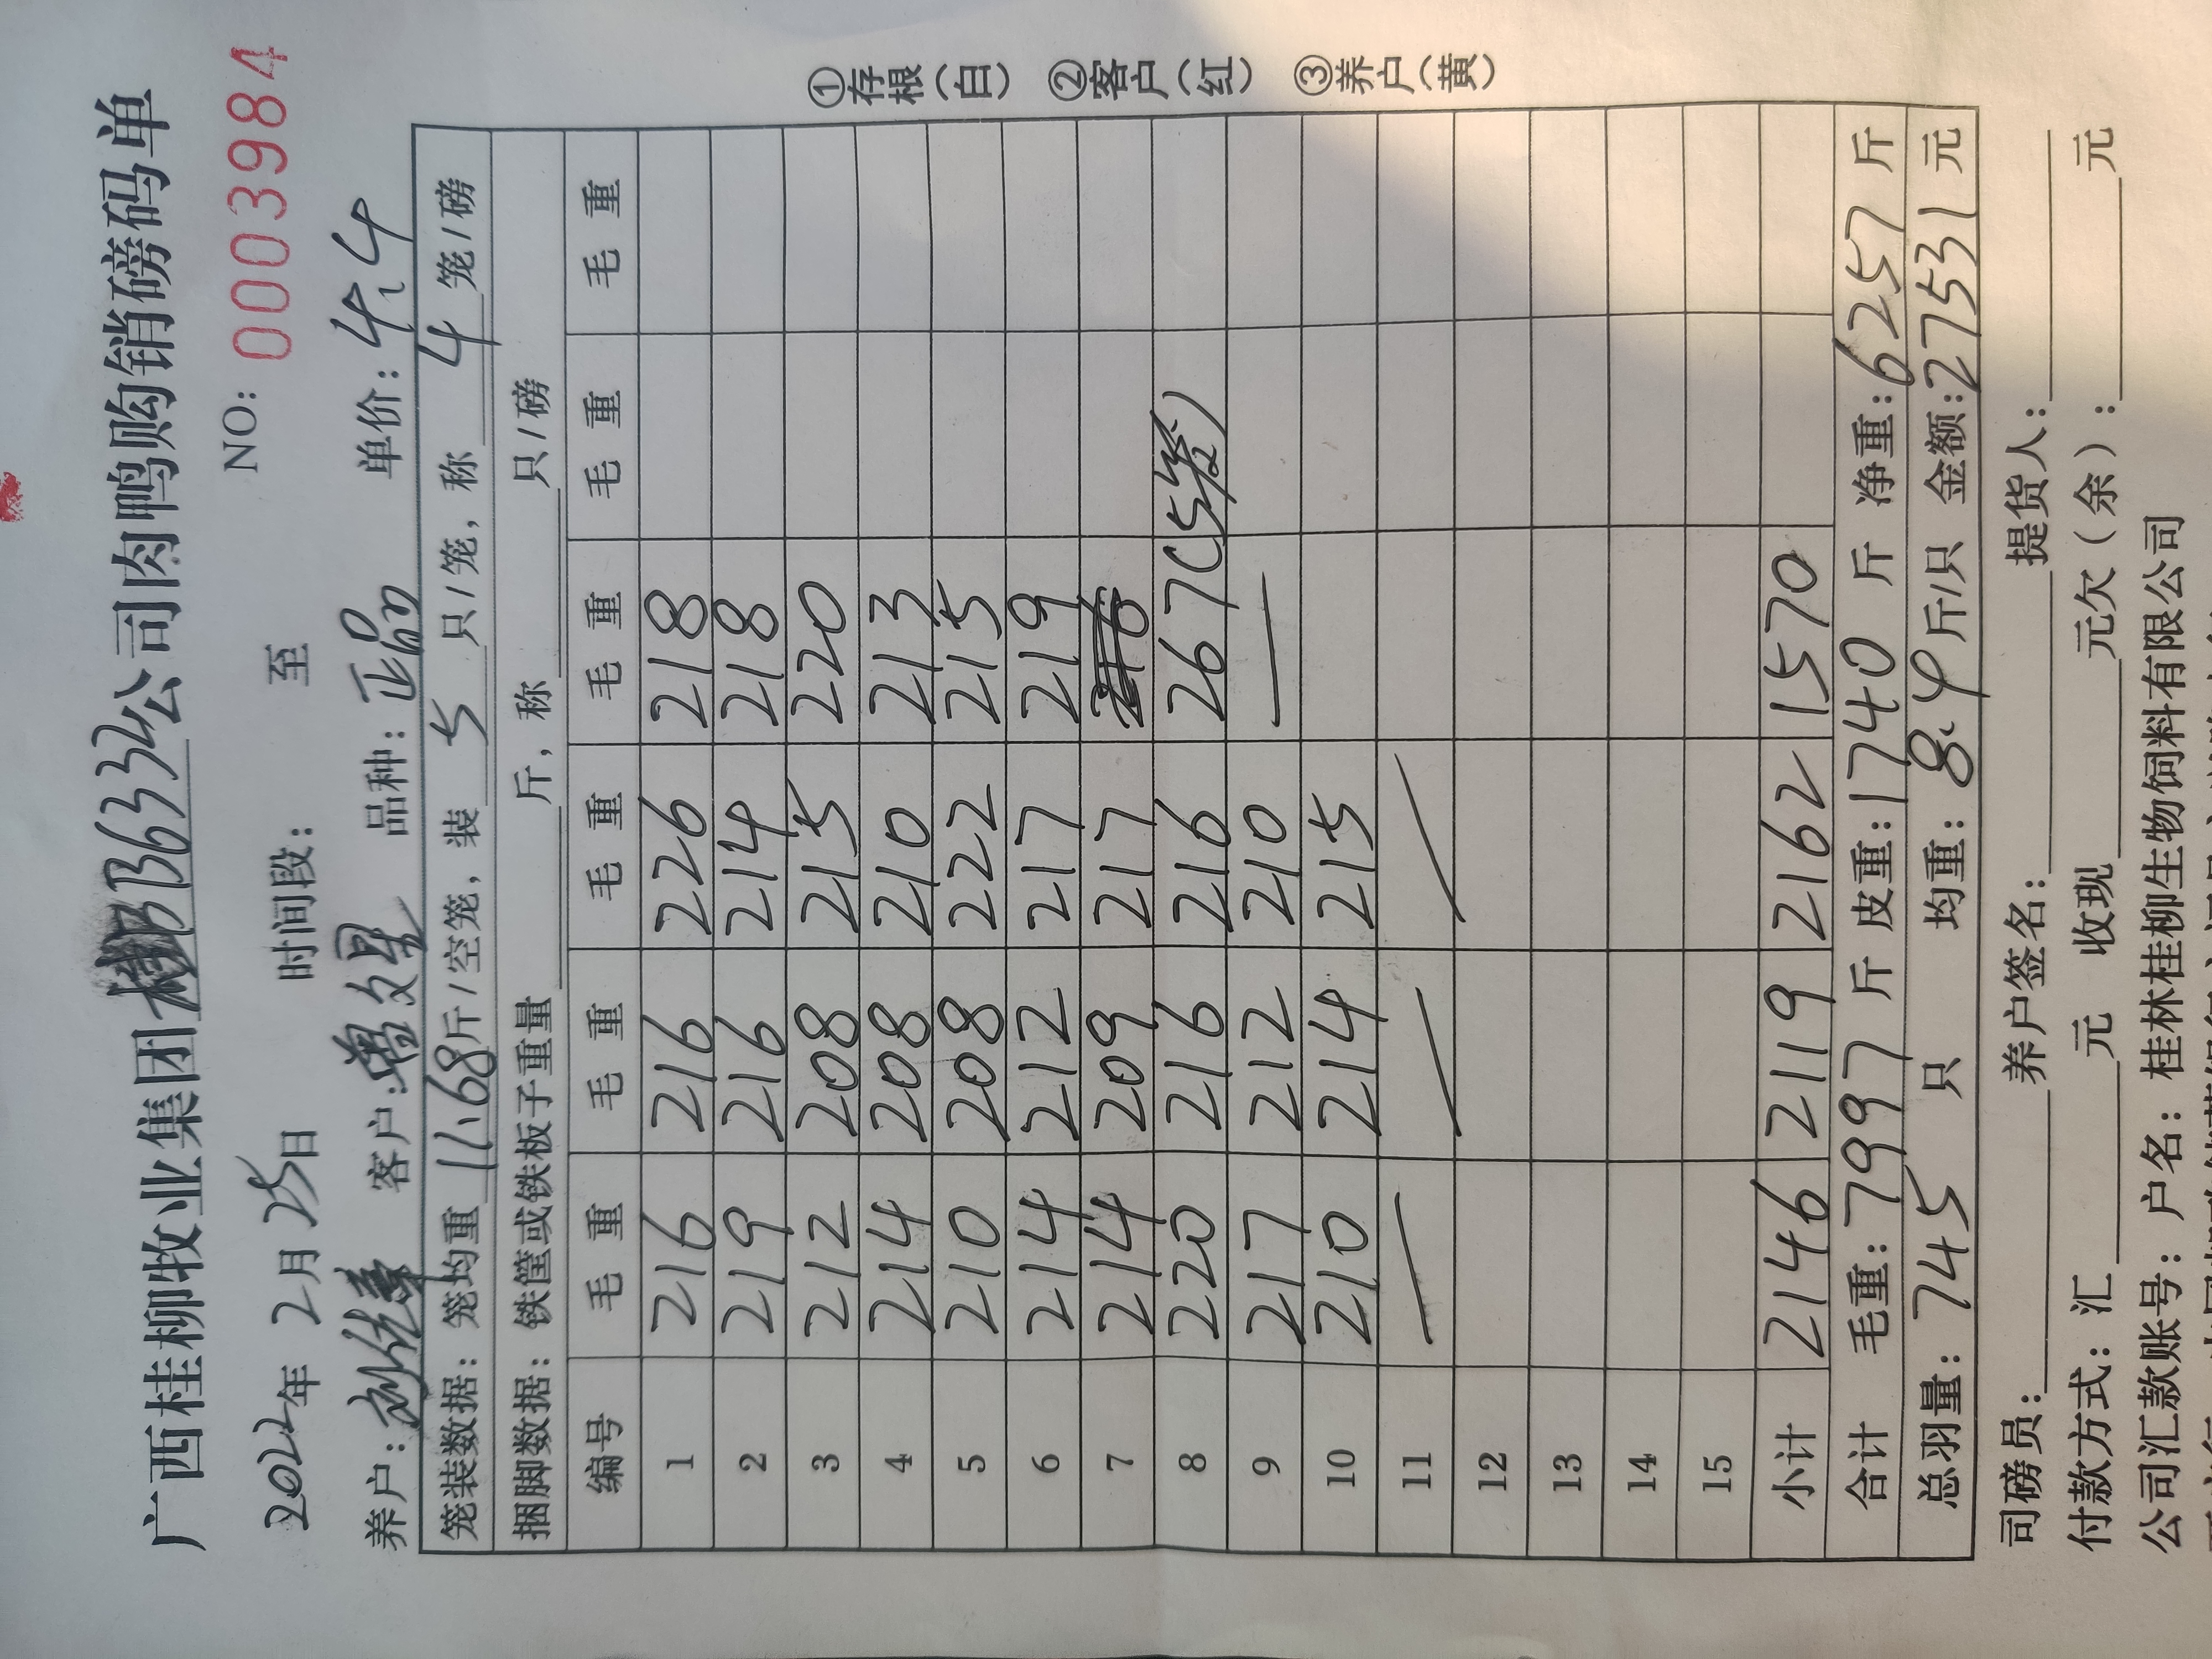 广西桂柳牧业集团B6334公司肉鸭购销磅码单
NO: 0003984
2022年 2月 25日 时间段: 至
养户: 客户: 品种:正品 单价:4.4
笼装数据:笼均重 11.68斤/空笼,装 5 只/笼,称 4 笼/磅
捆脚数据:铁筐或铁板子重量 斤,称 只/磅
编号 毛重 毛重 毛重 毛重 毛重 毛重
1 216 216 226 218
2 219 216 214 218
3 212 208 215 220
4 214 208 210 213
5 210 208 222 215
6 214 212 217 219
7 214 209 217
8 220 216 216 267(5笼)
9 217 212 210
10 210 214 215
11
12
13
14
15
小计 2146 2119 2162 1570
合计 毛重:7997斤 皮重:1740斤 净重:6257斤
总羽量:745 只 均重:8.4斤/只 金额:27531元
司磅员: 养户签名: 提货人:
付款方式:汇 元 收现 元欠(余): 元
公司汇款账号:户名:桂林桂柳生物饲料有限公司
①存根(白) ②客户(红) ③养户(黄)